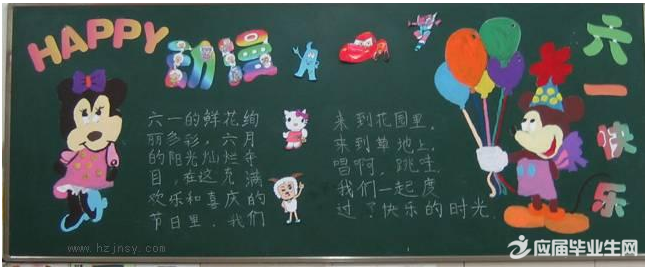 HAPPY
动漫
六一的鲜花绚
丽多彩，六月
的阳光灿烂夺
目，在这充满
欢乐和喜庆的
节日里，我们
来到花园里，
来到草地上，
唱啊，跳
我们一起度
过了快乐的时光.
六
一
快
乐
www.hzjnsy.com
应届毕业生网